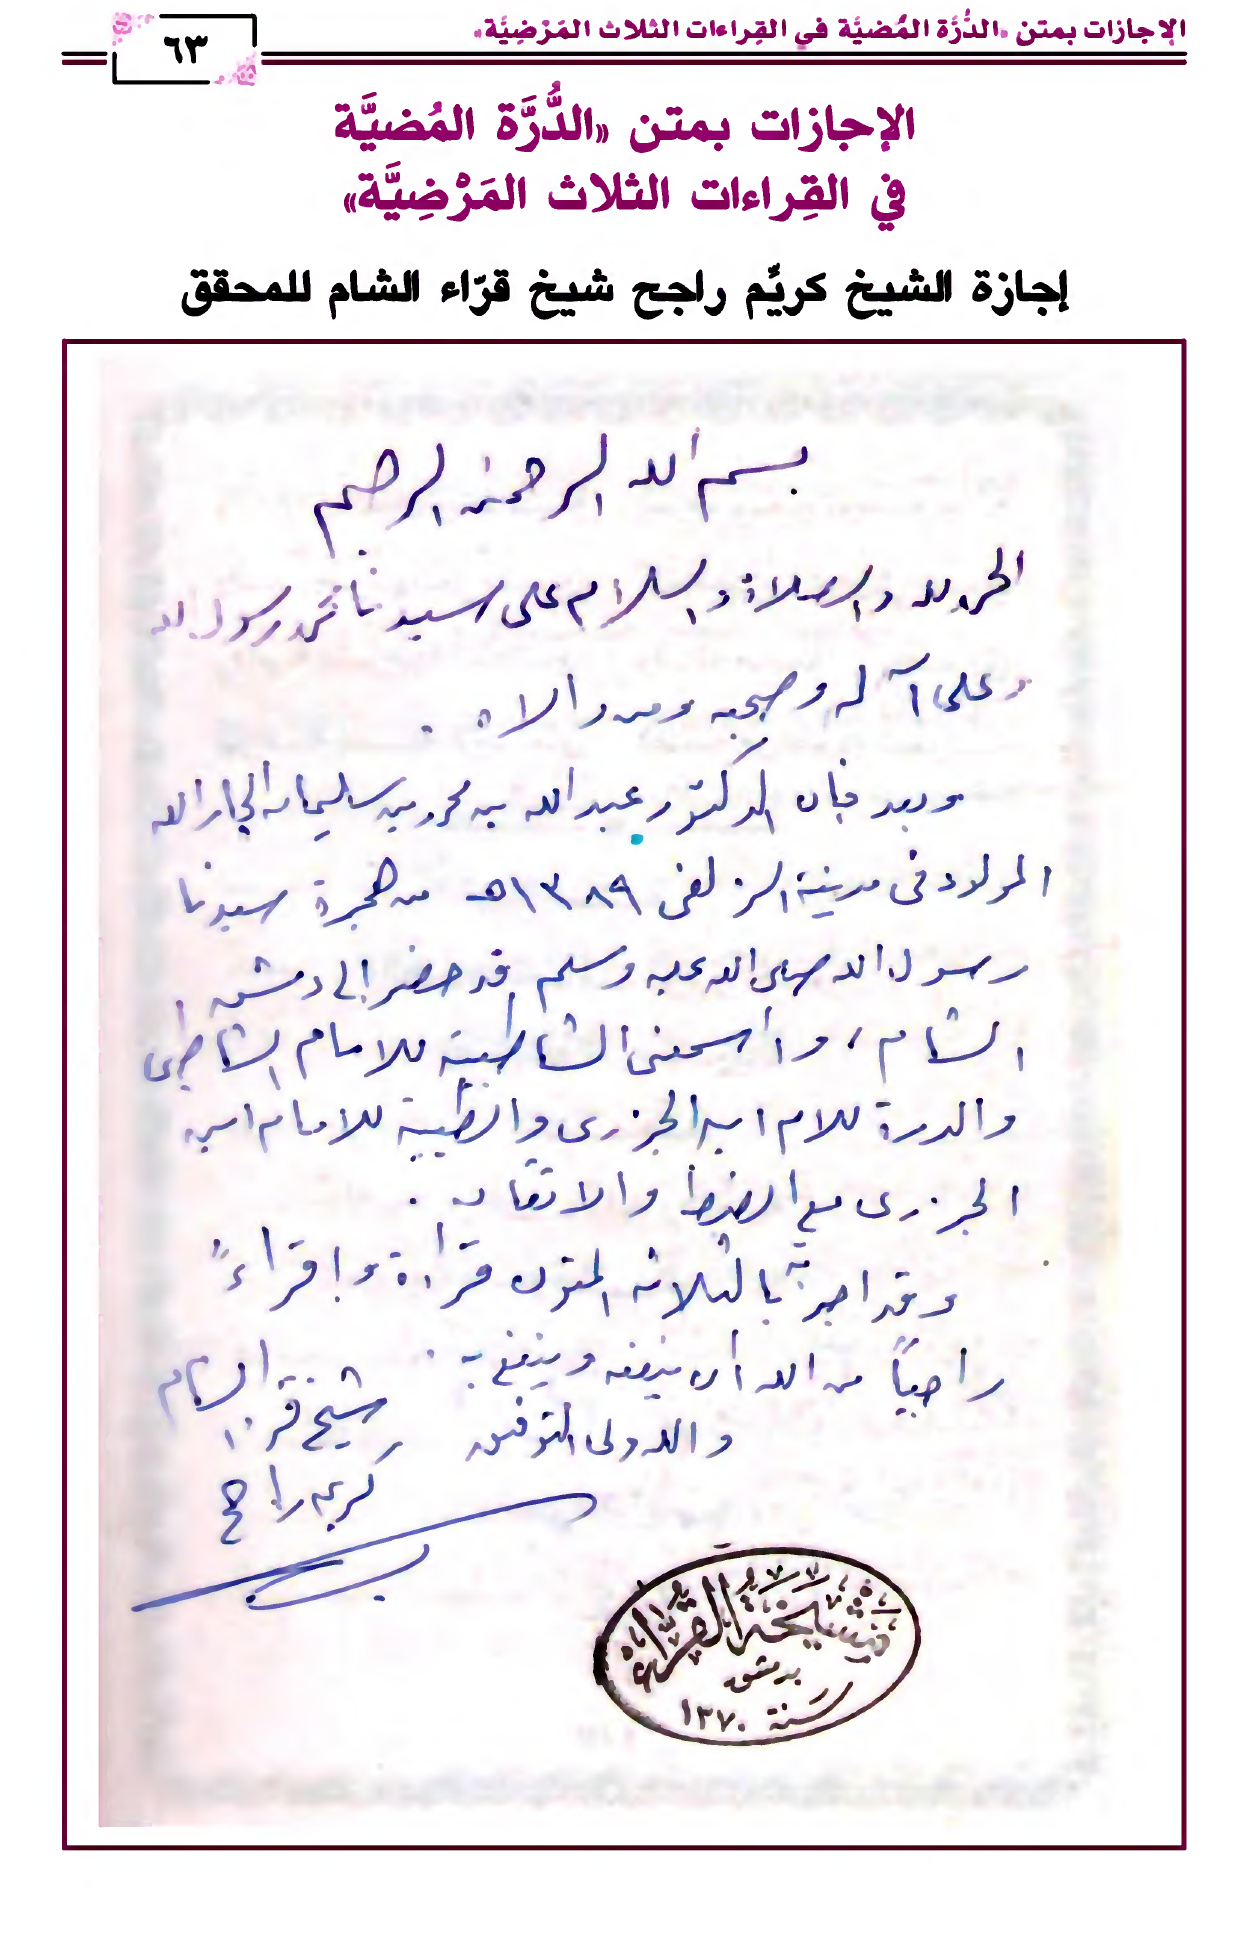 الإجازات بمتن «الدُّرَّة المُضيَّة في القِراءات الثلاث المَرْضِيَّة»
٦٣
الإجازات بمتن «الدُّرَّة المُضيَّة
في القِراءات الثلاث المَرْضِيَّة»
إجازة الشيخ كريِّم راجح شيخ قرّاء الشام للمحقق
بسم الله الرحمن الرحيم
الحمد لله والصلاة والسلام على سيدنا محمد رسول الله
وعلى آله وصحبه ومن والاه .
وبعد فإن الدكتور عبد الله بن محمد بن سليمان الجار الله
المولود في مدينة الزلفى ١٣٨٩هـ من هجرة سيدنا
رسول الله صلى الله عليه وسلم قد حضر إلى دمشق
الشام ، وأسمعني الشاطبية للامام الشاطبي
والدرة للام ابن الجزري والطيبة للامام ابن
الجزري مع الضبط والاتقان .
وقد اجزته بالثلاثة المتون قراءة وإقراءً
راجياً من الله أن ينفعه وينفع به .
والله ولي التوفيق
شيخ قراء الشام
كريم راجح
مَشْيَخَة القُرَّاء
بدمشق
سَنة ١٣٧٠